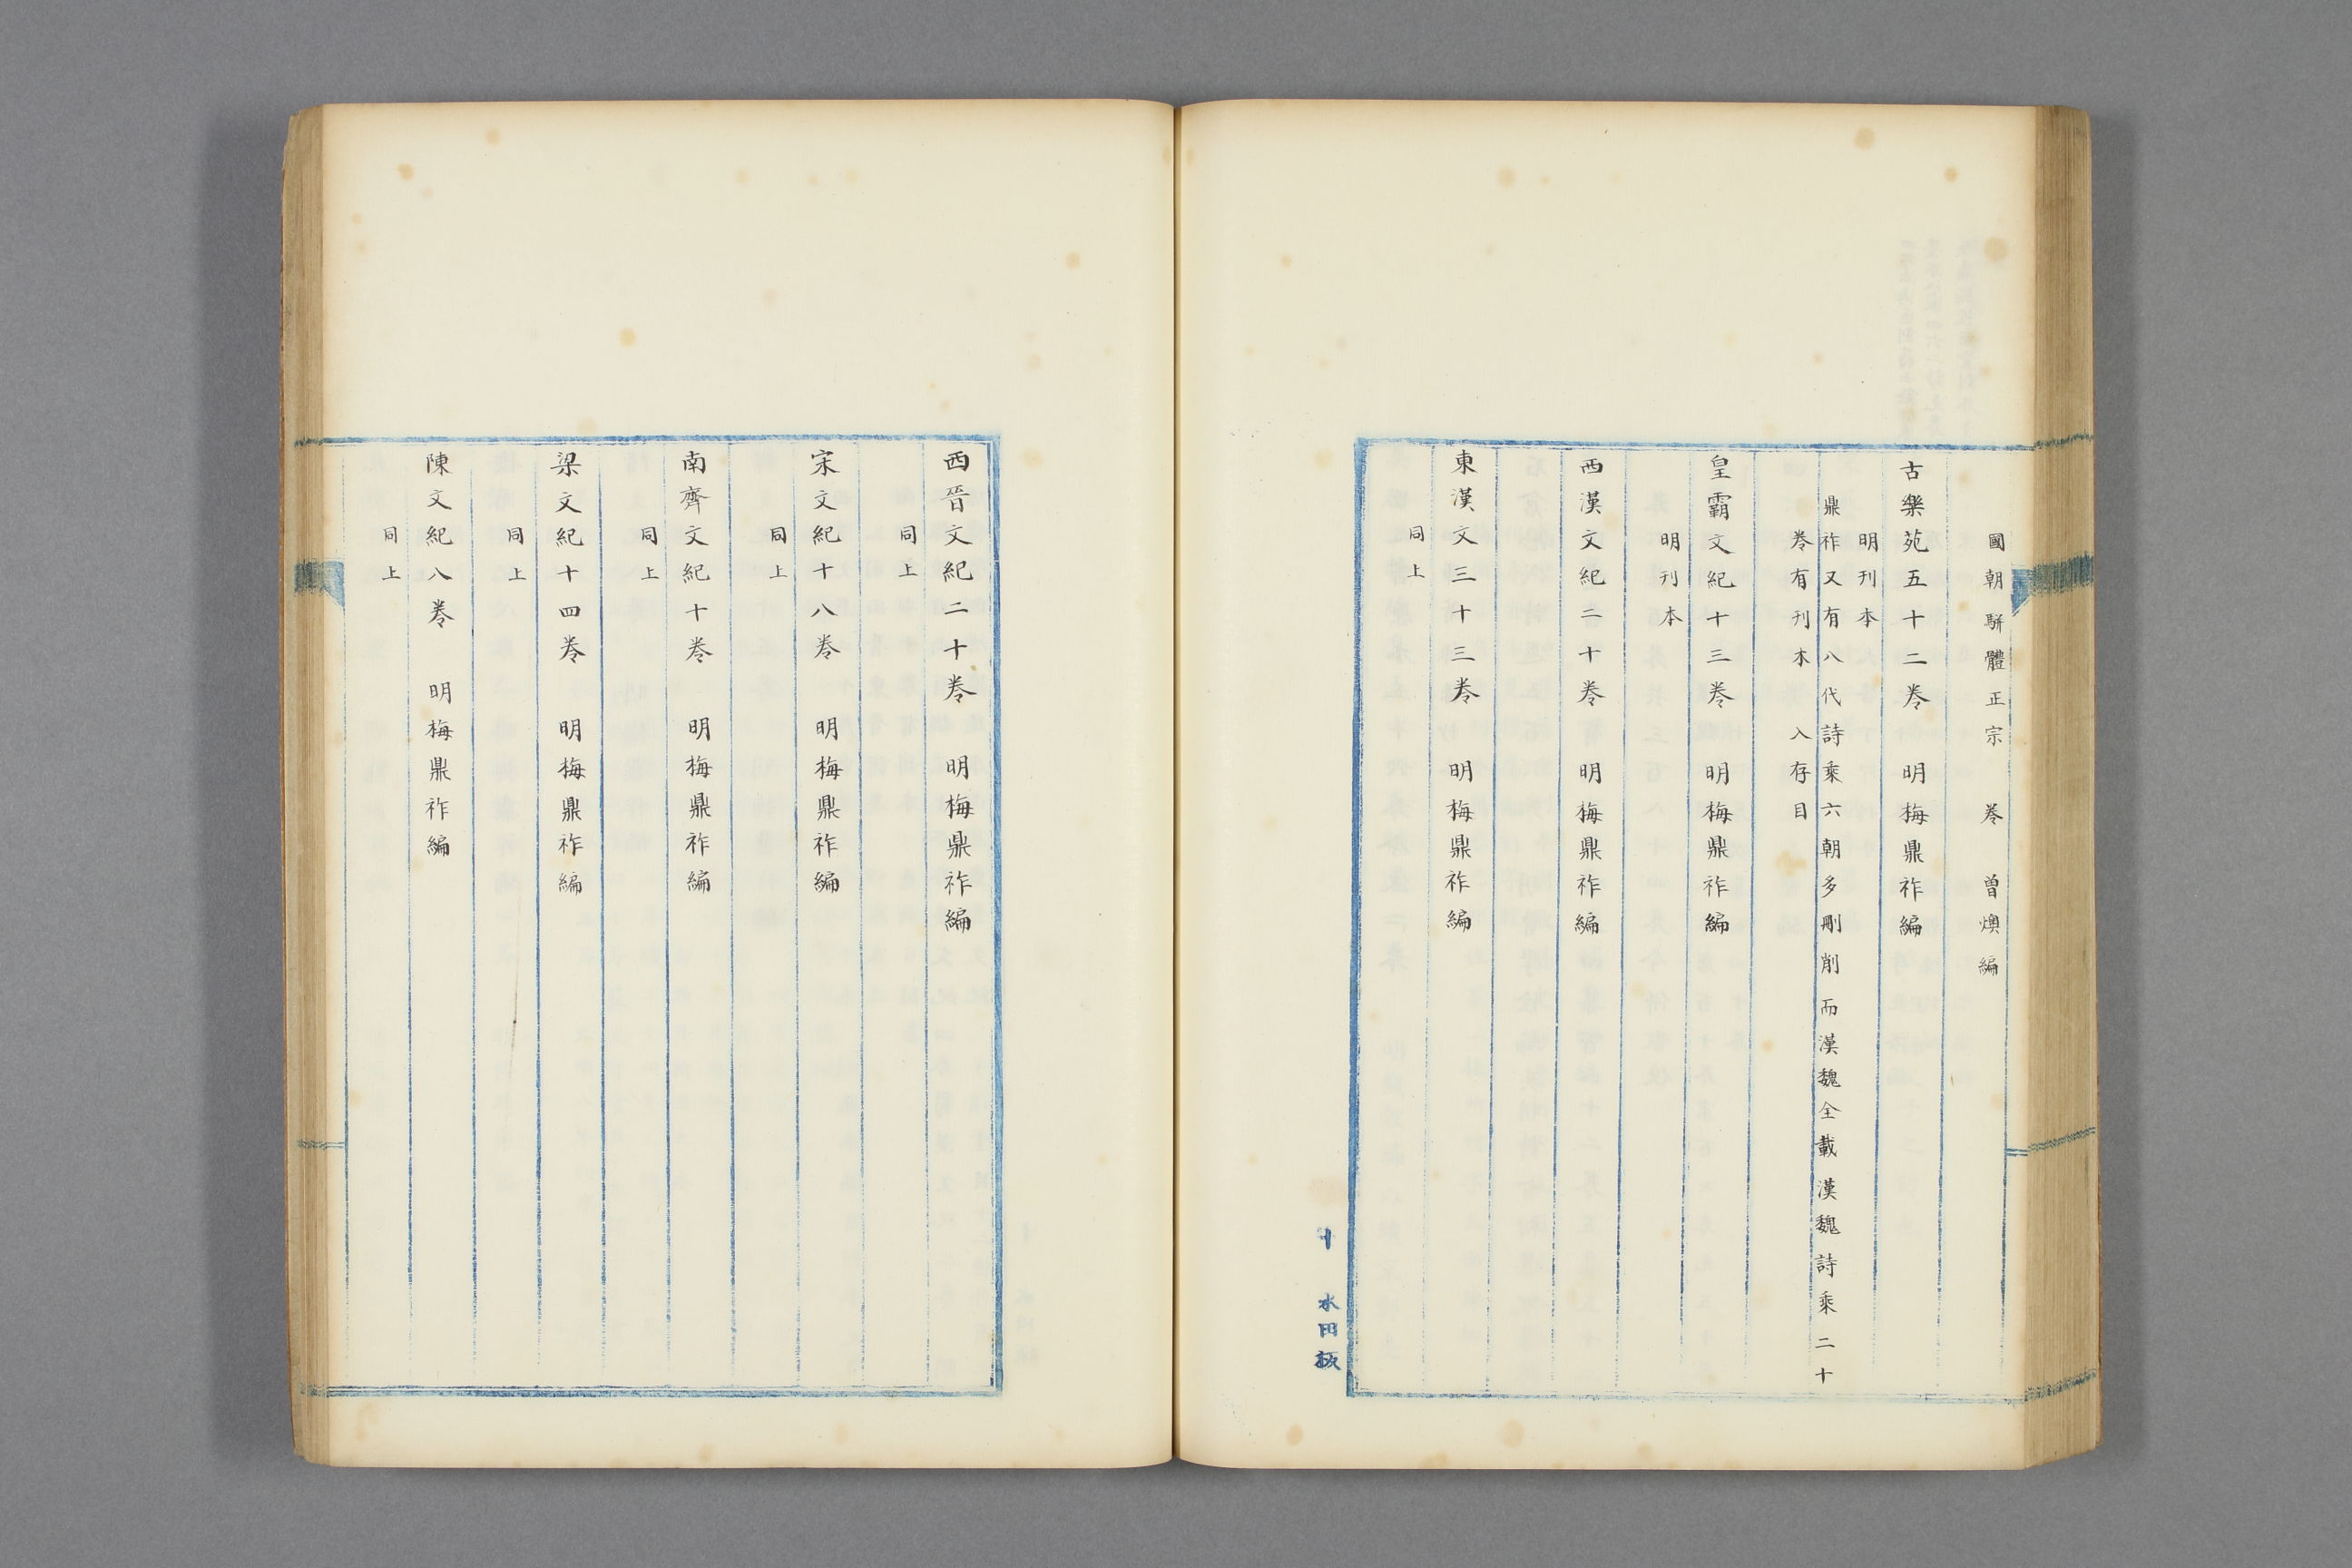 國朝駢體正宗　卷　曾燠編
古樂苑五十二卷　明梅鼎祚編
明刊本
鼎祚又有八代詩乘六朝多刪削而漢魏全載漢魏詩乘二十
卷有刊本　入存目
皇霸文紀十三卷　明梅鼎祚編
明刊本
西漢文紀二十卷　明梅鼎祚編
東漢文三十三卷　明梅鼎祚編
同上
水田板
西晉文紀二十卷　明梅鼎祚編
同上
宋文紀十八卷　明梅鼎祚編
同上
南齊文紀十卷　明梅鼎祚編
同上
梁文紀十四卷　明梅鼎祚編
同上
陳文紀八卷　明梅鼎祚編
同上